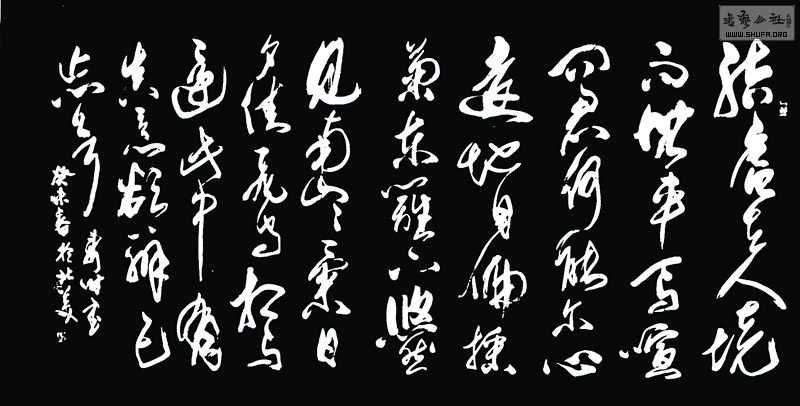 結廬在人境
而無車馬喧
問君何能尔心
遠地自偏採
菊東籬下悠然
見南山々氣日
夕佳飛鳥相与
還此中有
真意欲辨已
忘言
癸未春於北美
WWW.SHUFA.ORG